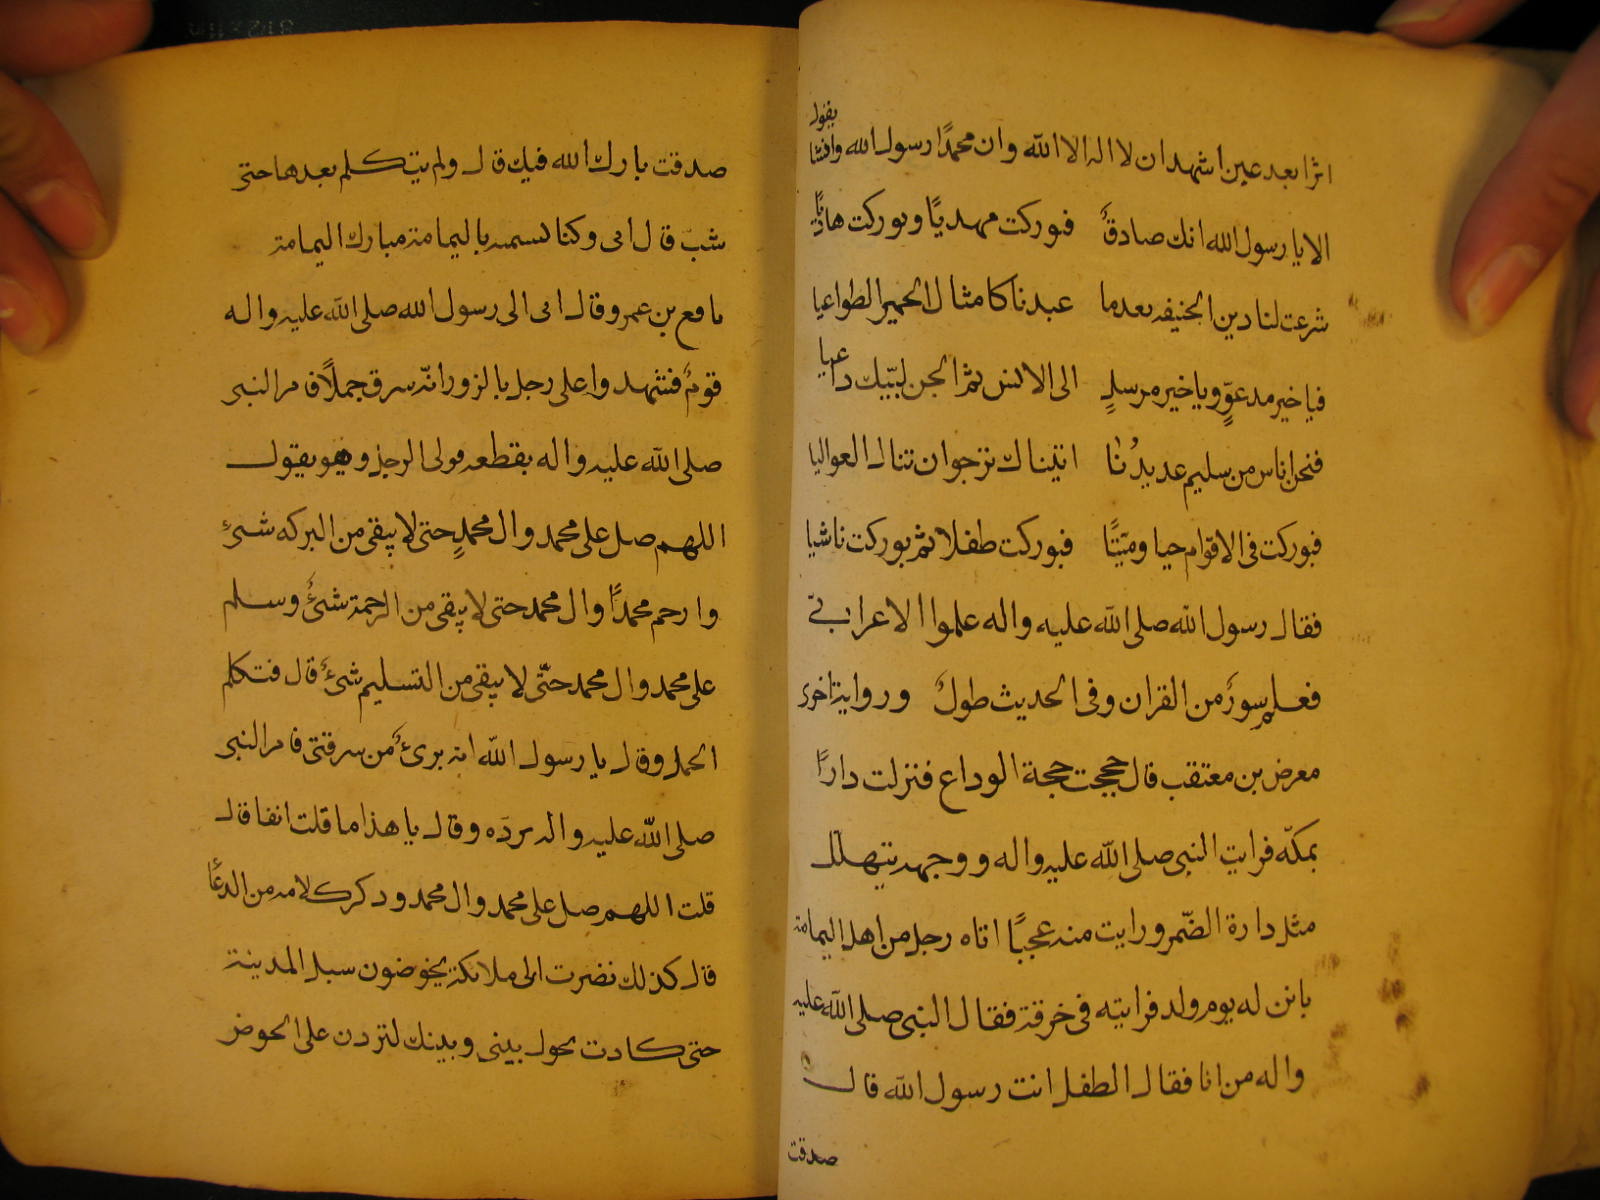 اثرا بعد عين اشهد ان لا اله الا الله وان محمدًا رسول الله وانشا
يقول
الا يا رسول الله انك صادقٌ فبوركت مهديًا وبوركت هاديًا
شرعت لنا دين الحنيفه بعدما عبدنا كامثال الحمير الطواعيا
فيا خير مدعوٍّ ويا خير مرسلٍ الى الانس ثم الجن لبّيك داعيا
فنحن اناس من سليم عديدُنا اتيناك نرجوا ن تنال العواليا
فبوركت فى الاقوام حيا وميّتًا فبوركت طفلا ثم بوركت ناشيا
فقال رسول الله صلى الله عليه واله علموا الاعرابى
فعلم سورٌ من القران وفى الحديث طولٌ ورواية اخرى
معرض بن معتقب قال حججت حجة الوداع فنزلت دارًا
بمكّه فرايت النبى صلى الله عليه واله ووجهه يتهلل
مثل دارة القمر ورايت منه عجبًا اتاه رجل من اهل اليمامة
بابن له يوم ولد فرايته فى خرقة فقال النبى صلى الله عليه
واله من انا فقال الطفل انت رسول الله قال
صدقت
صدقت بارك الله فيك قال ولم يتكلم بعدها حتى
شبّ قال ابى وكنا نسميه باليمامة مبارك اليمامة
نافع بن عمر وقال اتى الى رسول الله صلى الله عليه واله
قومٌ فشهدوا على رجل بالزور انّه سرق جملًا فامر النبى
صلى الله عليه واله بقطعه فولى الرجل وهو يقول
اللهم صل على محمد وال محمدٍ حتى لا يبقى من البركه شىءٍ
وارحم محمدًا وال محمد حتى لا يبقى من الرحمة شىءٌ وسلم
على محمد وال محمد حتّى لا يبقى من التسليم شىءٌ قال فتكلم
الجمل وقال يا رسول الله انه برىءٌ من سرقتى فامر النبى
صلى الله عليه واله بردّه وقال يا هذا ما قلت انفا قال
قلت اللهم صل على محمد وال محمد وذكر كلامه من الدعا
قال كذلك نضرت الى ملائكة يخوضون سبل المدينة
حتى كادت تحول بينى وبينك لتردن على الحوض